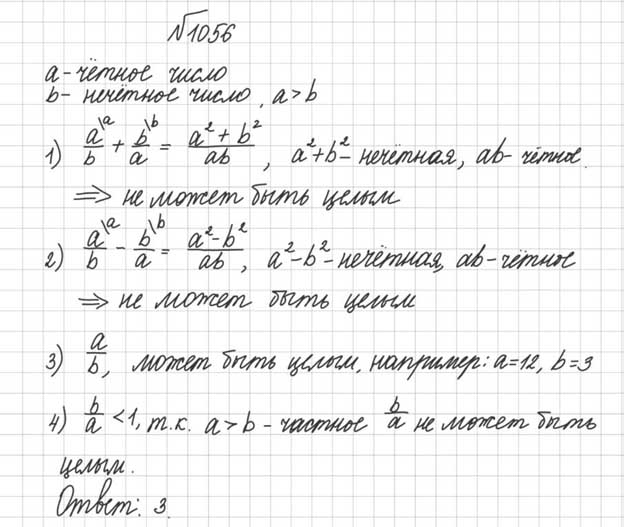 №1056
a - чётное число
b - нечётное число, a > b
1) a/b \a + b/a \b = (a² + b²)/ab, a² + b² - нечётная, ab - чётное.
⟹ не может быть целым
2) a/b \a - b/a \b = (a² - b²)/ab, a² - b² - нечётная, ab - чётное
⟹ не может быть целым
3) a/b, может быть целым, например: a=12, b=3
4) b/a < 1, т.к. a > b - частное b/a не может быть
целым.
Ответ: 3.